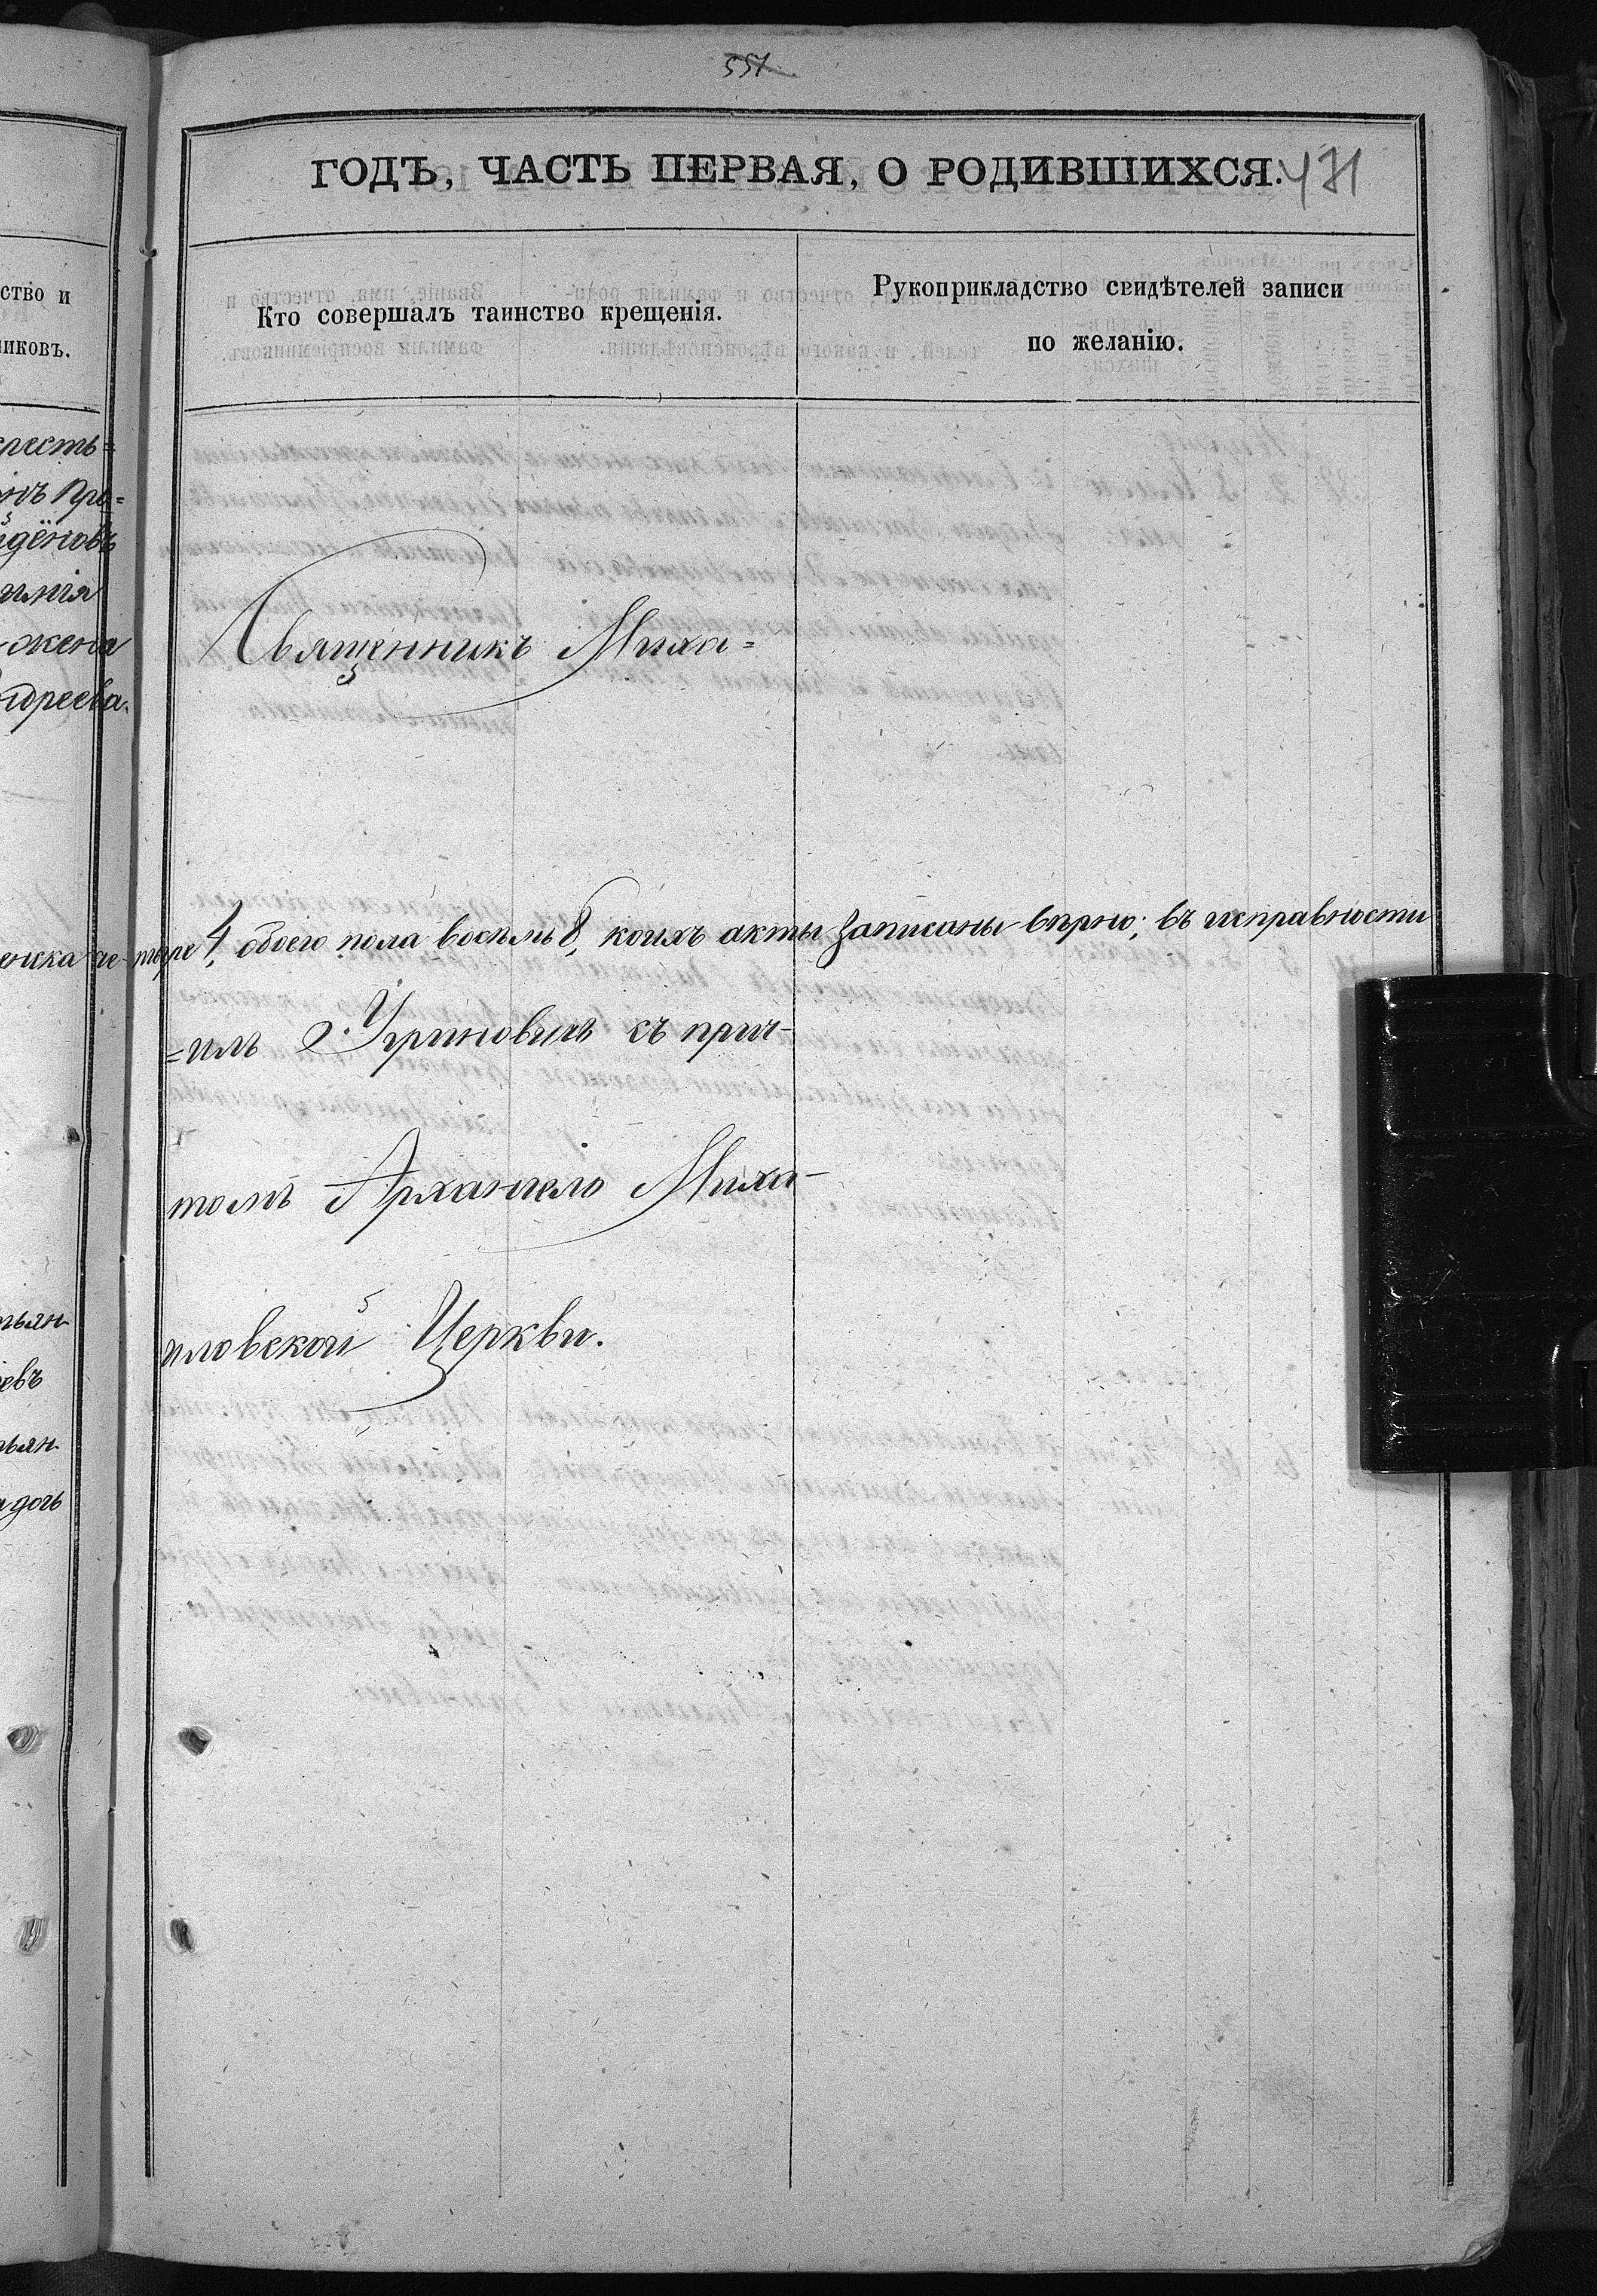 551.
ГОДЪ, ЧАСТЬ ПЕРВАЯ, О РОДИВШИХСЯ.
471
Кто совершалъ таинство крещенія.
Рукоприкладство свидѣтелей записи
по желанію.
ство и
иковъ.
кресть=
дёновъ
жена
ндреева.
Священникъ Миха=
енска че-тыре 4, обоего пола восемь 8, коихъ акты записаны вѣрно; въ исправности
=илъ Угриновичъ съ прич-
томъ Архангело Миха-
иловской Церкви.
тьян-
евъ
тьян-
дочь